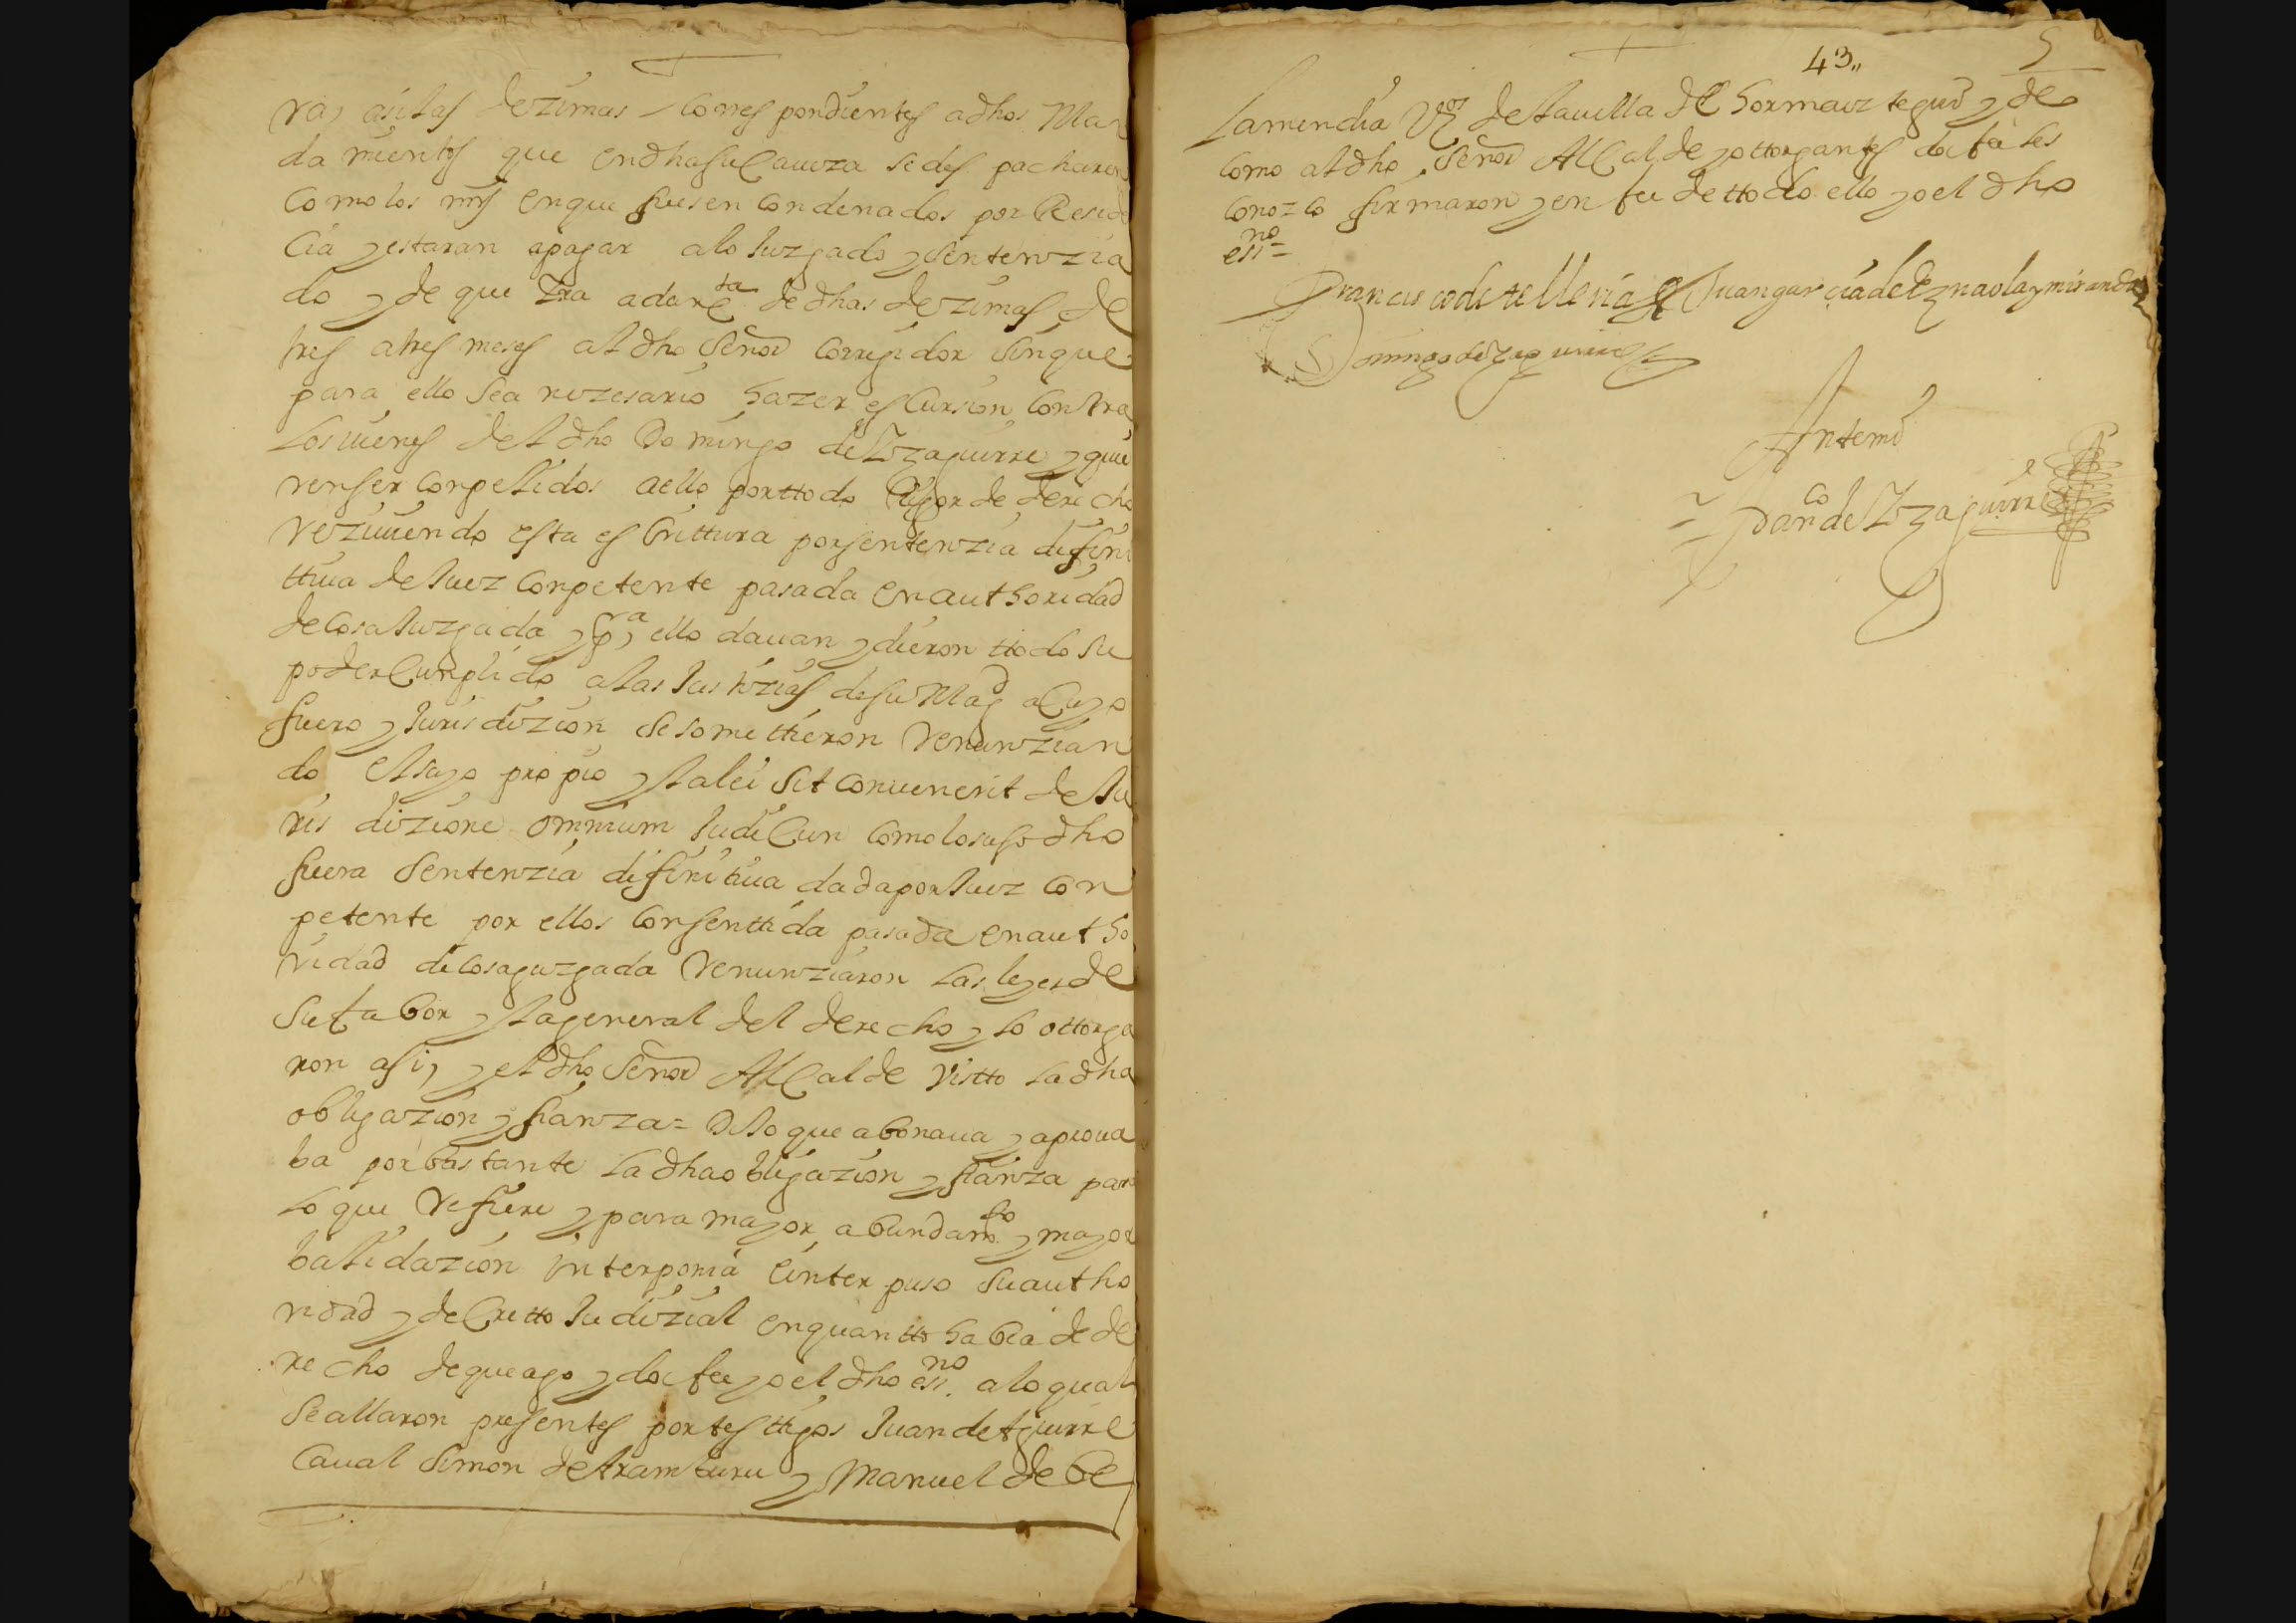 ra, asi las dezimas correspondientes a dhos Man
damientos que en dha su Caueza se des pacharon
Como los mrs en que fuesen Condenados por Residen
cia y estaran a pagar a lo Juzgado y sentenzia
do y de que dra a dar q.ta de dhas dezimas de
tres a tres meses al dho Señor Corregidor sin que
para ello sea nezesario hazer escursion Contra
los uienes del dho Domingo de Yzaguirre y quie
ren ser conpelidos a ello por ttodo Rigor de derecho
reziuiendo esta escrittura por sentenzia difini
ttiua de Juez Conpetente pasada en authoridad
de Cosa Juzgada y p.ra ello dauan y dieron ttodo su
poder Cunplido a las Justizias de su Mag.d a Cuyo
fuero y Jurisdizion se somettieron renunzian
do el suyo propio y la lei sit convenerit de Ju
ris dizione omnium Judicun como lo suso dho
fuera sentenzia difinitiua dada por Juez Con
petente por ellos Consenttida pasada en autho
ridad de cosa juzgada renunziaron las leyes de
su fabor y la general del derecho y lo ottorga
ron asi, y el dho Señor Alcalde visto la dha
obligazion y fianza = Dijo que abonaua y aproua
ba por bastante la dha obligazion y fianza para
lo que refiere y para mayor abundam.to y mayor
balidazion interponia e interpuso su autho
ridad y decretto Judizial en quantto habia de de
recho de que ago y doi fee yo el dho ess.no a lo qual
se allaron presentes por testtigos Juan de Aguirre
Caual Simon de Aramburu y Manuel de Be
43,, 5
lamendia Vz.os de la uilla de Hormaiztegui y de
como al dho Señor Alcalde y ottorgantes doi fee les
conozco firmaron y en fee de ttodo ello yo el dho
ess.no =
Francisco de telleria Juan garcia de Eznaola y miranda
Domingo de Yzaguirre
Ante mi
Fran.co de Yzaguirre